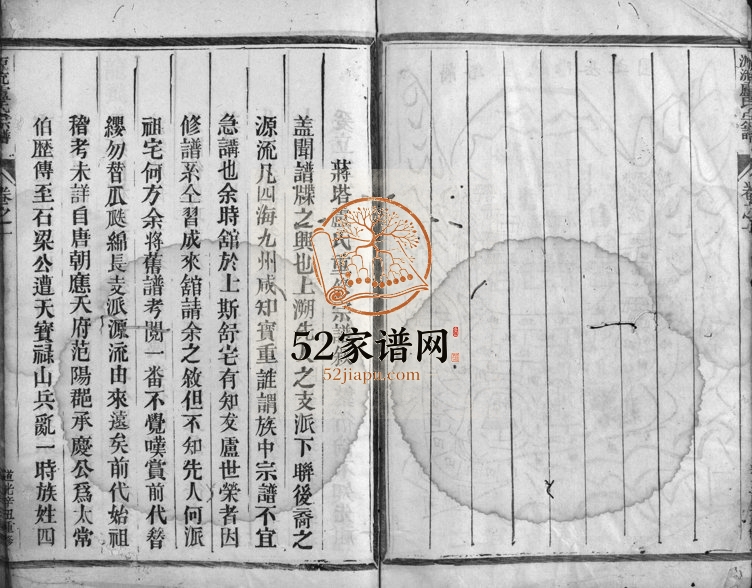 蔣塔盧氏重修宗譜敘
蓋聞譜牒之興也上溯先人之支派下聯後裔之
源流凡四海九州咸知寶重誰謂族中宗譜不宜
急講也余時舘於上斯舒宅有知友盧世榮者因
修譜系仝習成來舘請余之敘但不知先人何派
祖宅何方余將舊譜考閱一番不覺嘆賞前代簪
纓勿替瓜瓞綿長支派源流由來遠矣前代始祖
稽考未詳自唐朝應天府范陽郡承慶公爲太常
伯歷傳至石梁公遭天寶祿山兵亂一時族姓四
卷之一
道光辛丑重修
52家谱网
52jiapu.com